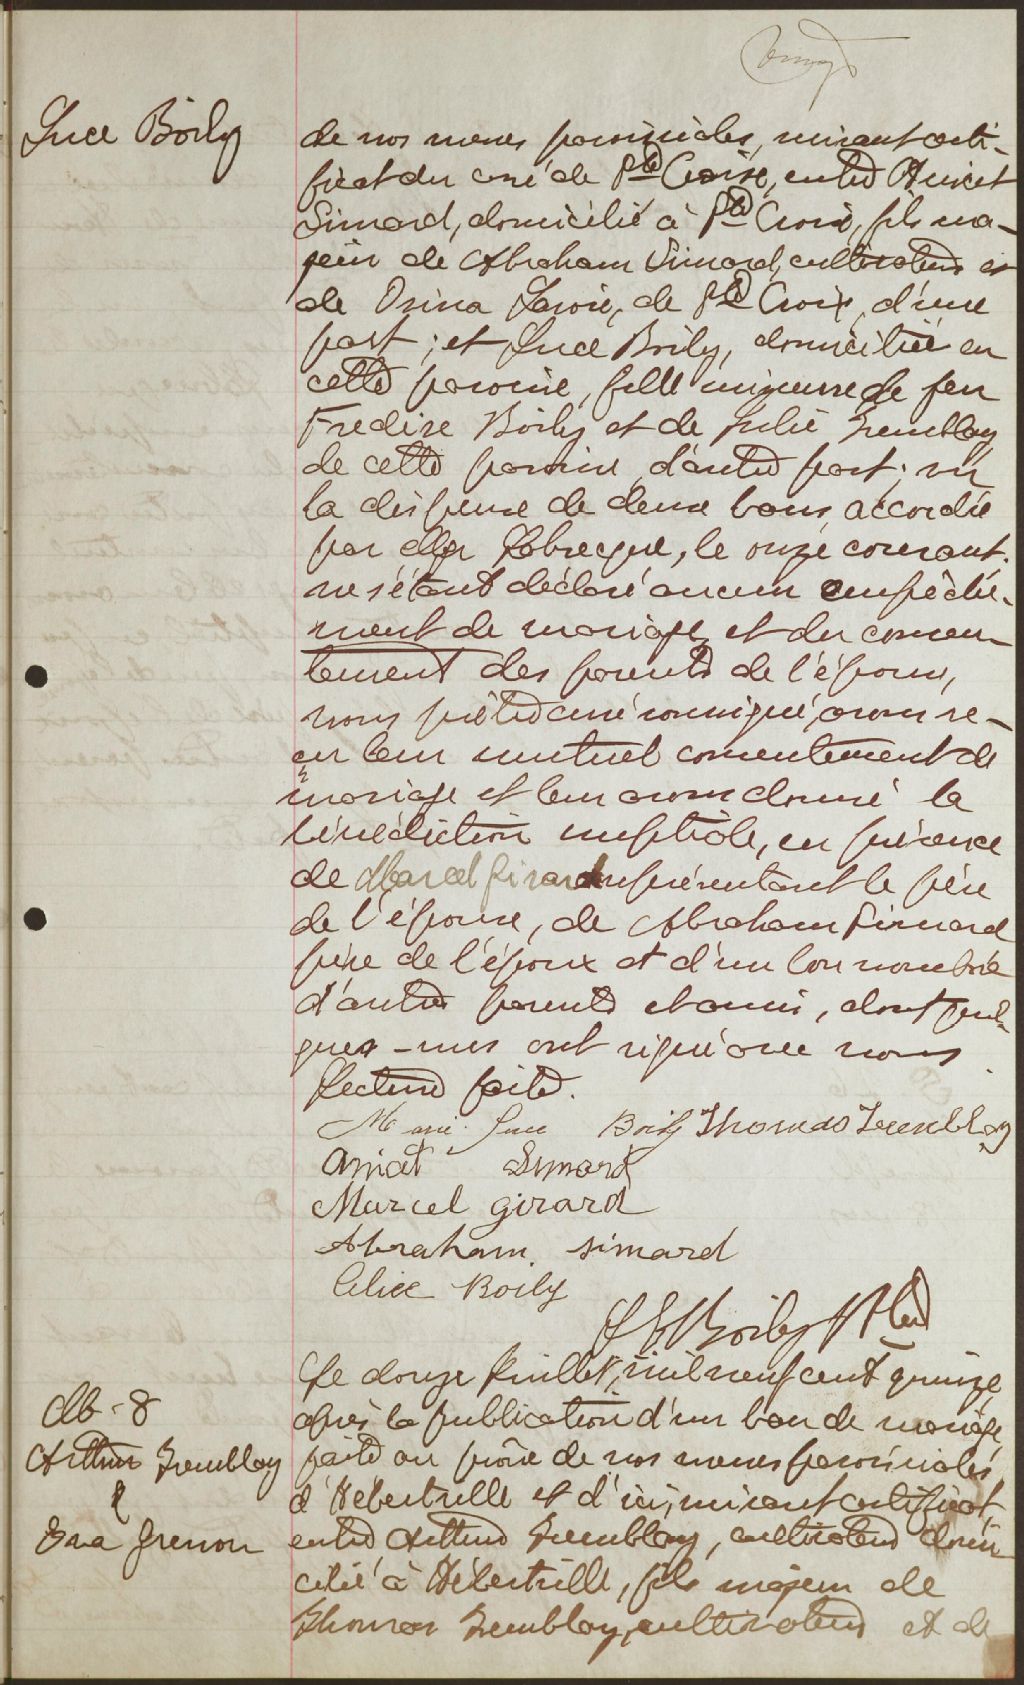 Luce Boily
de nos messes paroissiales, suivant certi-
ficat du curé de Ste Croix, entre
Simard, domicilié à Ste Croix, fils ma-
jeur de Abraham Simard, cultivateur et
de Osina Lavoie, de Ste Croix, d'une
part ; et Luce Boily, domiciliée en
cette paroisse, fille mineure de feu
Boily et de Julie Tremblay
de cette paroisse, d'autre part ; vu
la dispense de deux bans, accordée
par Mgr Labrecque, le onze courant.
ne s'étant déclaré aucun empêche-
ment de mariage, et du consen-
tement des parents de l'épouse,
nous prêtre curé soussigné, avons re-
çu leur mutuel consentement de
mariage et leur avons donné la
bénédiction nuptiale, en présence
de Marcel Girard représentant le père
de l'épouse, de Abraham Simard
père de l'époux et d'un bon nombre
d'autres parents et amis, dont quel-
ques-uns ont signé avec nous.
Lecture faite.
Marie Luce Boily Thomas Tremblay
Simard
Marcel Girard
Abraham Simard
Boily
Boily Ptre
Le douze Juillet, mil neuf cent quinze
M-8
après la publication d'un ban de mariage,
Arthur Tremblay
faite au prône de nos messes paroissiales,
&
d'Hébertville et d'ici, suivant certificat,
Grenon
entre Arthur Tremblay, cultivateur domi-
cilié à Hébertville, fils majeur de
Thomas Tremblay, cultivateur et de